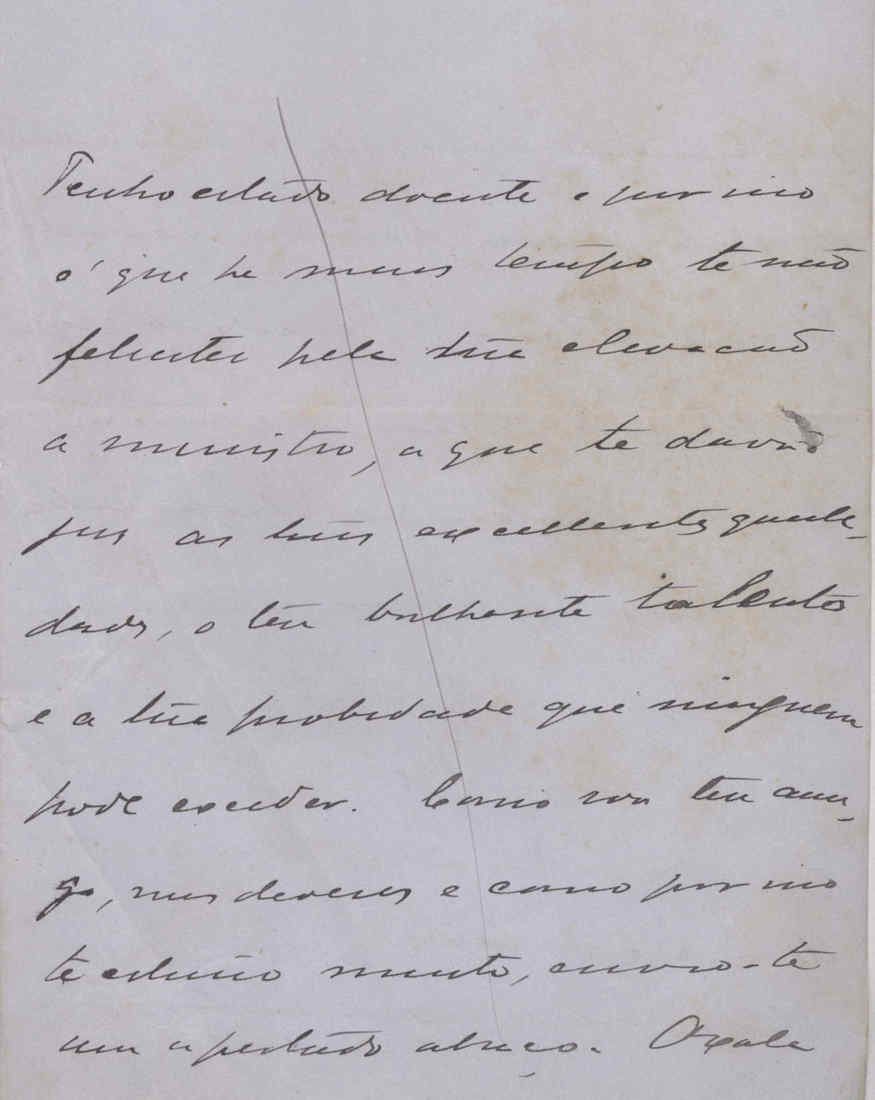 Tenho estado doente e por isso
é que ha mais tempo te não
felicitei pela tua elevação
a ministro, a que te davão
jus as tuas excellentes quali-
dades, o teu brilhante talento
e a tua probidade que ninguem
pode exceder. Como sou teu ami-
go, mas deveras e como por isso
te estimo muito, envio-te
um apertado abraço. Oxalá